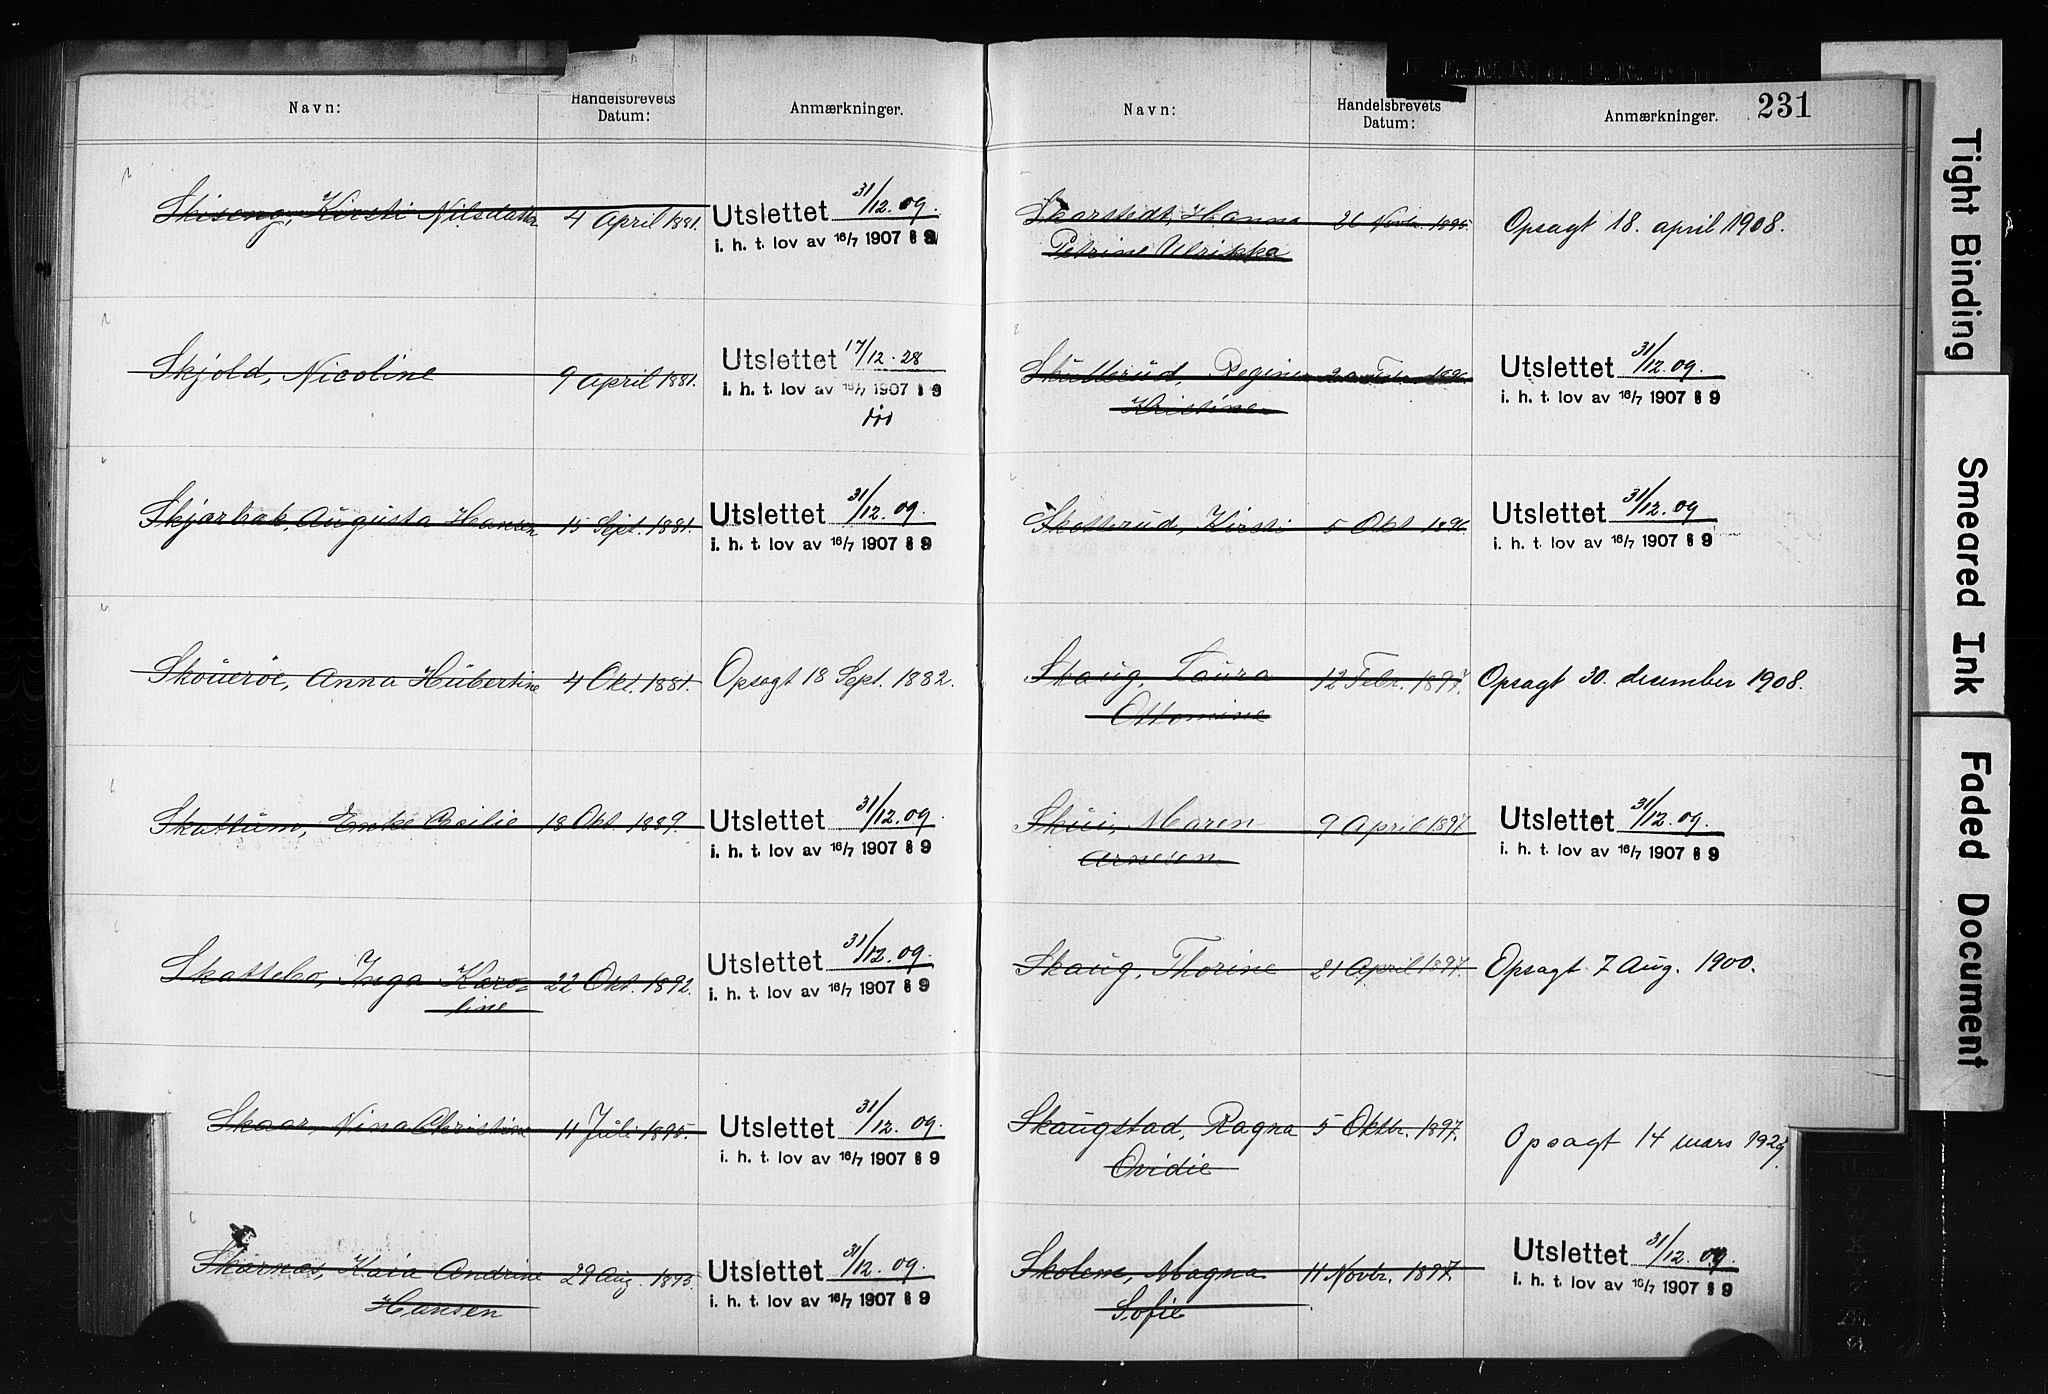 Navn:
Handelsbrevets
Datum:
Anmærkninger.
Skiseng, Kirsti Nilsdatter 4 April 1881.
Utslettet 31/12.09.
i. h. t. lov av 16/7 1907 § 9
Skjold, Nicoline 9 April 1881.
Utslettet 17/12.28
i. h. t. lov av 16/7 1907 § 9
død
Skjærbak, Augusta Hansen 15 Sept. 1881.
Utslettet 31/12.09.
i. h. t. lov av 16/7 1907 § 9
Skouerøe, Anna Hübertine 4 Okt. 1881. Opsagt 18 Sept. 1882.
Skattum, Cecilie 18 Okt 1889.
Utslettet 31/12.09.
i. h. t. lov av 16/7 1907 § 9
Skattebo, Inga Karo= 22 Okt. 1892.
line
Utslettet 31/12.09.
i. h. t. lov av 16/7 1907 § 9
Skaar, Nina Christine 11 Juli 1895.
Utslettet 31/12.09.
i. h. t. lov av 16/7 1907 § 9
Skarnæs, Kaia Andrine 29 Aug. 1895
Hansen
Utslettet 31/12.09.
i. h. t. lov av 16/7 1907 § 9
Navn:
Handelsbrevets
Datum:
Anmærkninger.
231
Skarstedt, Hanna Novbr. 1895. Opsagt 18. april 1908.
Petrine Ulrikka
Skullerud, Regine Febr. 1896.
Kristine
Utslettet 31/12.09.
i. h. t. lov av 16/7 1907 § 9
Skotterud, Kirsti 5 Okt 1896.
Utslettet 31/12.09
i. h. t. lov av 16/7 1907 § 9
Skaug, Laura 12 Febr. 1897. Opsagt 30. desember 1908.
Ottomine
Skui, Maren 9 April 1897.
Arnesen
Utslettet 31/12.09.
i. h. t. lov av 16/7 1907 § 9
Skaug, Thorine 21 April 1897. Opsagt 7 Aug. 1900.
Skaugstad, Ragna 5 Oktbr. 1897. Opsagt 14 mars 1929
Ovidie
Skolem, Magna 11 Novbr. 1897.
Sofie
Utslettet 31/12.09.
i. h. t. lov av 16/7 1907 § 9
Tight Binding
Smeared Ink
Faded Document